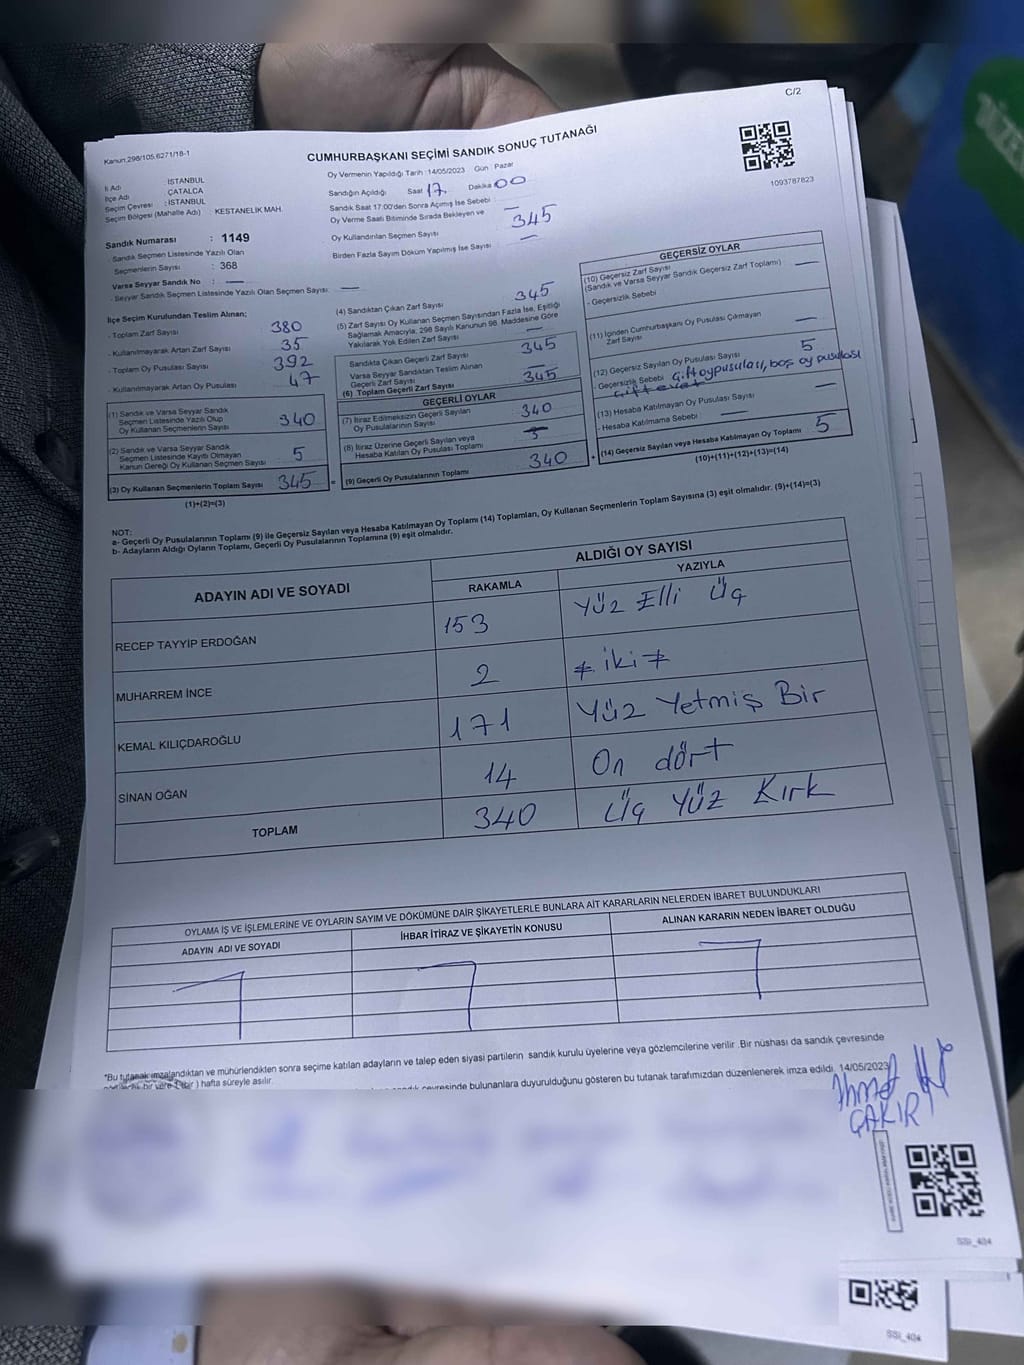 C/2
Kanun:298/105,6271/18-1
CUMHURBAŞKANI SEÇİMİ SANDIK SONUÇ TUTANAĞI
1093787823
İl Adı : İSTANBUL
İlçe Adı : ÇATALCA
Seçim Çevresi : İSTANBUL
Seçim Bölgesi (Mahalle Adı) : KESTANELİK MAH.
Sandık Numarası : 1149
- Sandık Seçmen Listesinde Yazılı Olan
Seçmenlerin Sayısı : 368
Varsa Seyyar Sandık No : —
- Seyyar Sandık Seçmen Listesinde Yazılı Olan Seçmen Sayısı: —
Oy Vermenin Yapıldığı Tarih :14/05/2023 Gün : Pazar
Sandığın Açıldığı Saat 17 Dakika 00
Sandık Saat 17:00'den Sonra Açılmış İse Sebebi —
Oy Verme Saati Bitiminde Sırada Bekleyen ve
Oy Kullandırılan Seçmen Sayısı 345
Birden Fazla Sayım Döküm Yapılmış İse Sayısı —
İlçe Seçim Kurulundan Teslim Alınan;
- Toplam Zarf Sayısı 380
- Kullanılmayarak Artan Zarf Sayısı 35
- Toplam Oy Pusulası Sayısı 392
- Kullanılmayarak Artan Oy Pusulası 47
(1) Sandık ve Varsa Seyyar Sandık
Seçmen Listesinde Yazılı Olup
Oy Kullanan Seçmenlerin Sayısı 340
(2) Sandık ve Varsa Seyyar Sandık
Seçmen Listesinde Kayıtlı Olmayan
Kanun Gereği Oy Kullanan Seçmen Sayısı 5
(3) Oy Kullanan Seçmenlerin Toplam Sayısı 345
(1)+(2)=(3)
(4) Sandıktan Çıkan Zarf Sayısı 345
(5) Zarf Sayısı Oy Kullanan Seçmen Sayısından Fazla İse, Eşitliği
Sağlamak Amacıyla; 298 Sayılı Kanunun 98. Maddesine Göre
Yakılarak Yok Edilen Zarf Sayısı —
Sandıkta Çıkan Geçerli Zarf Sayısı 345
Varsa Seyyar Sandıktan Teslim Alınan
Geçerli Zarf Sayısı
(6) Toplam Geçerli Zarf Sayısı 345
GEÇERLİ OYLAR
(7) İtiraz Edilmeksizin Geçerli Sayılan
Oy Pusulalarının Sayısı 340
(8) İtiraz Üzerine Geçerli Sayılan veya
Hesaba Katılan Oy Pusulası Toplamı
= (9) Geçerli Oy Pusulalarının Toplamı 340
GEÇERSİZ OYLAR
(10) Geçersiz Zarf Sayısı
(Sandık ve Varsa Seyyar Sandık Geçersiz Zarf Toplamı) —
- Geçersizlik Sebebi
(11) İçinden Cumhurbaşkanı Oy Pusulası Çıkmayan
Zarf Sayısı —
(12) Geçersiz Sayılan Oy Pusulası Sayısı 5
- Geçersizlik Sebebi Çift oy pusulası, boş oy pusulası
(13) Hesaba Katılmayan Oy Pusulası Sayısı —
- Hesaba Katılmama Sebebi : —
+ (14) Geçersiz Sayılan veya Hesaba Katılmayan Oy Toplamı 5
(10)+(11)+(12)+(13)=(14)
NOT:
a- Geçerli Oy Pusulalarının Toplamı (9) ile Geçersiz Sayılan veya Hesaba Katılmayan Oy Toplamı (14) Toplamları, Oy Kullanan Seçmenlerin Toplam Sayısına (3) eşit olmalıdır. (9)+(14)=(3)
b- Adayların Aldığı Oyların Toplamı, Geçerli Oy Pusulalarının Toplamına (9) eşit olmalıdır.
ADAYIN ADI VE SOYADI
ALDIĞI OY SAYISI
RAKAMLA YAZIYLA
RECEP TAYYİP ERDOĞAN 153 Yüz Elli Üç
MUHARREM İNCE 2 iki
KEMAL KILIÇDAROĞLU 171 Yüz Yetmiş Bir
SİNAN OĞAN 14 On dört
TOPLAM 340 Üç Yüz Kırk
OYLAMA İŞ VE İŞLEMLERİNE VE OYLARIN SAYIM VE DÖKÜMÜNE DAİR ŞİKAYETLERLE BUNLARA AİT KARARLARIN NELERDEN İBARET BULUNDUKLARI
ADAYIN ADI VE SOYADI İHBAR İTİRAZ VE ŞİKAYETİN KONUSU ALINAN KARARIN NEDEN İBARET OLDUĞU
*Bu tutanak imzalandıktan ve mühürlendikten sonra seçime katılan adayların ve talep eden siyasi partilerin sandık kurulu üyelerine veya gözlemcilerine verilir .Bir nüshası da sandık çevresinde
bir yere 1 (bir ) hafta süreyle asılır.
çevresinde bulunanlara duyurulduğunu gösteren bu tutanak tarafımızdan düzenlenerek imza edildi. 14/05/2023
Ahmet
ÇAKIR
SSI_404
SSI_404
DÜZE